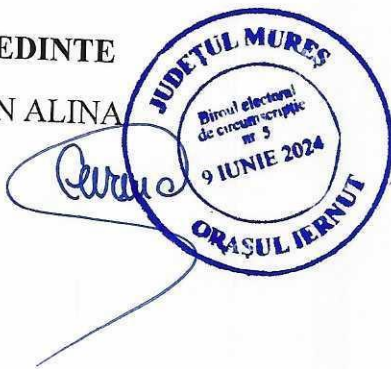 EDINTE
N ALINA
JUDEȚUL MUREȘ
Biroul electoral
de circumscripție
nr 5
9 IUNIE 2024
ORAȘUL IERNUT